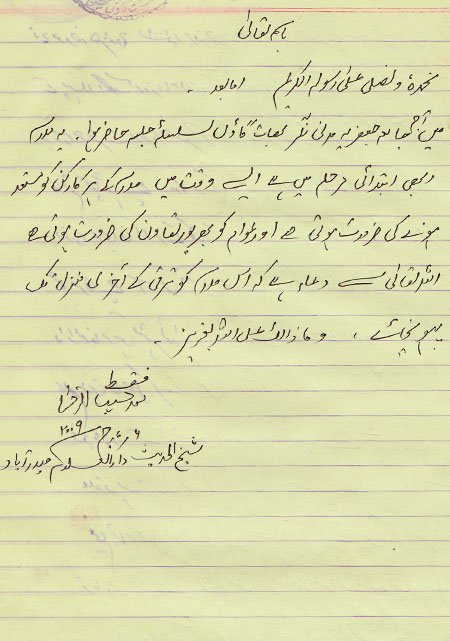 باسم تعالیٰ
نحمدہ و نصلی علی رسولہ الکریم اما بعد ۔
میں آج جامعہ جعفریہ مدنی نگر گاؤں بسلسلۂ جلسہ حاضر ہوا ۔ یہ مدرسہ
ابھی ابتدائی مرحلہ میں ہے ایسے وقت میں مدرسہ کے ہر کارکن کو مستعد
ہونے کی ضرورت ہوتی ہے اور عوام کو بھرپور تعاون کی ضرورت ہوتی ہے
اللہ تعالیٰ سے دعاء ہے کہ اس مدرسہ کو ترقی کے آخری منزل تک
پہونچائے ، و ما ذالک علی اللہ بعزیز ۔
فقط
محمد
۲۰۰۹
شیخ الحدیث دارالعلوم حیدرآباد